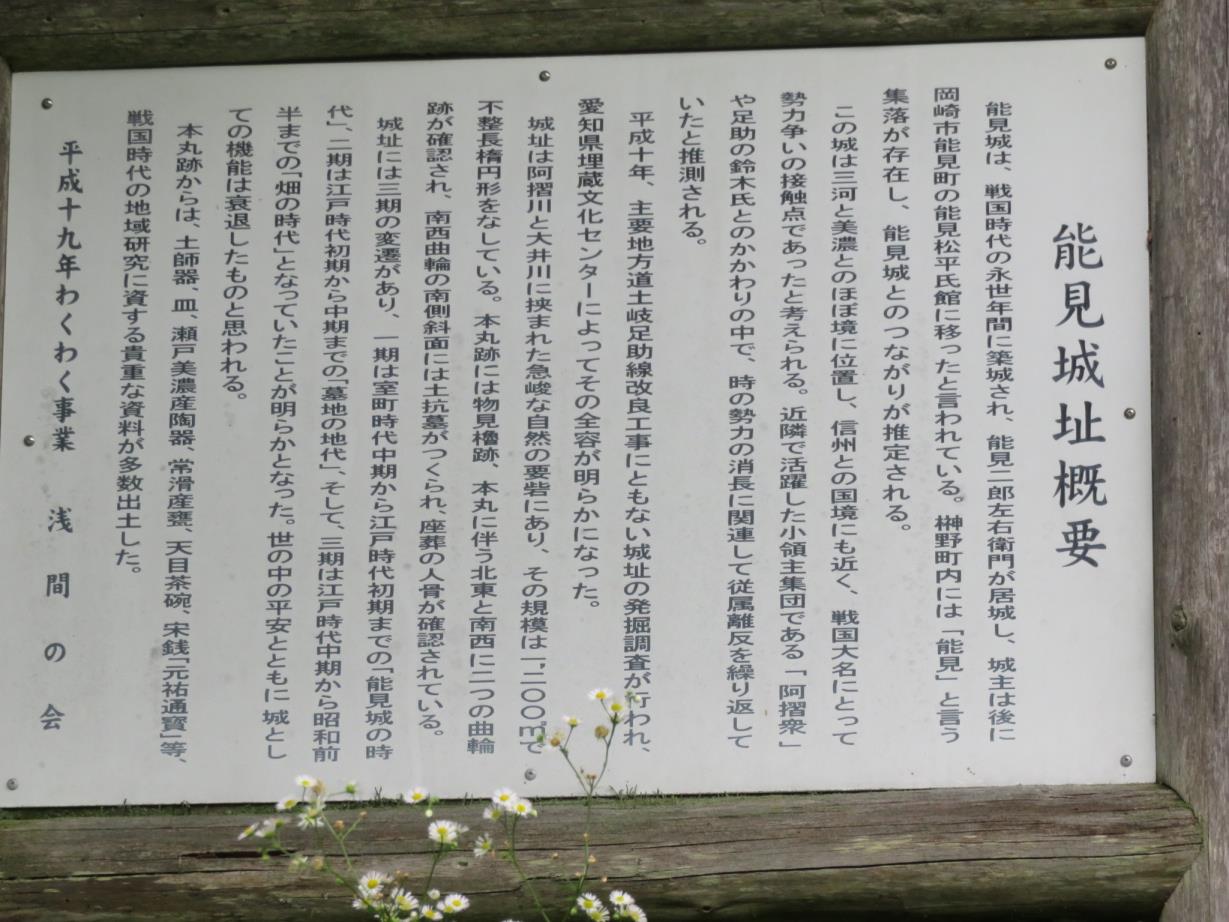 能見城址概要
能見城は、戦国時代の永世年間に築城され、能見二郎左右衛門が居城し、城主は後に
岡崎市能見町の能見松平氏館に移ったと言われている。榊野町内には「能見」と言う
集落が存在し、能見城とのつながりが推定される。
この城は三河と美濃とのほぼ境に位置し、信州との国境にも近く、戦国大名にとって
勢力争いの接触点であったと考えられる。近隣で活躍した小領主集団である「阿摺衆」
や足助の鈴木氏とのかかわりの中で、時の勢力の消長に関連して従属離反を繰り返して
いたと推測される。
平成十年、主要地方道土岐足助線改良工事にともない城址の発掘調査が行われ、
愛知県埋蔵文化センターによってその全容が明らかになった。
城址は阿摺川と大井川に挟まれた急峻な自然の要砦にあり、その規模は一,二〇〇㎡で
不整長楕円形をなしている。本丸跡には物見櫓跡、本丸に伴う北東と南西に二つの曲輪
跡が確認され、南西曲輪の南側斜面には土抗墓がつくられ、座葬の人骨が確認されている。
城址には三期の変遷があり、一期は室町時代中期から江戸時代初期までの「能見城の時
代」、二期は江戸時代初期から中期までの「墓地の地代」、そして、三期は江戸時代中期から昭和前
半までの「畑の時代」となっていたことが明らかとなった。世の中の平安とともに 城とし
ての機能は衰退したものと思われる。
本丸跡からは、土師器、皿、瀬戸美濃産陶器、常滑産甕、天目茶碗、宋銭「元祐通寶」等、
戦国時代の地域研究に資する貴重な資料が多数出土した。
平成十九年わくわく事業 浅間の会